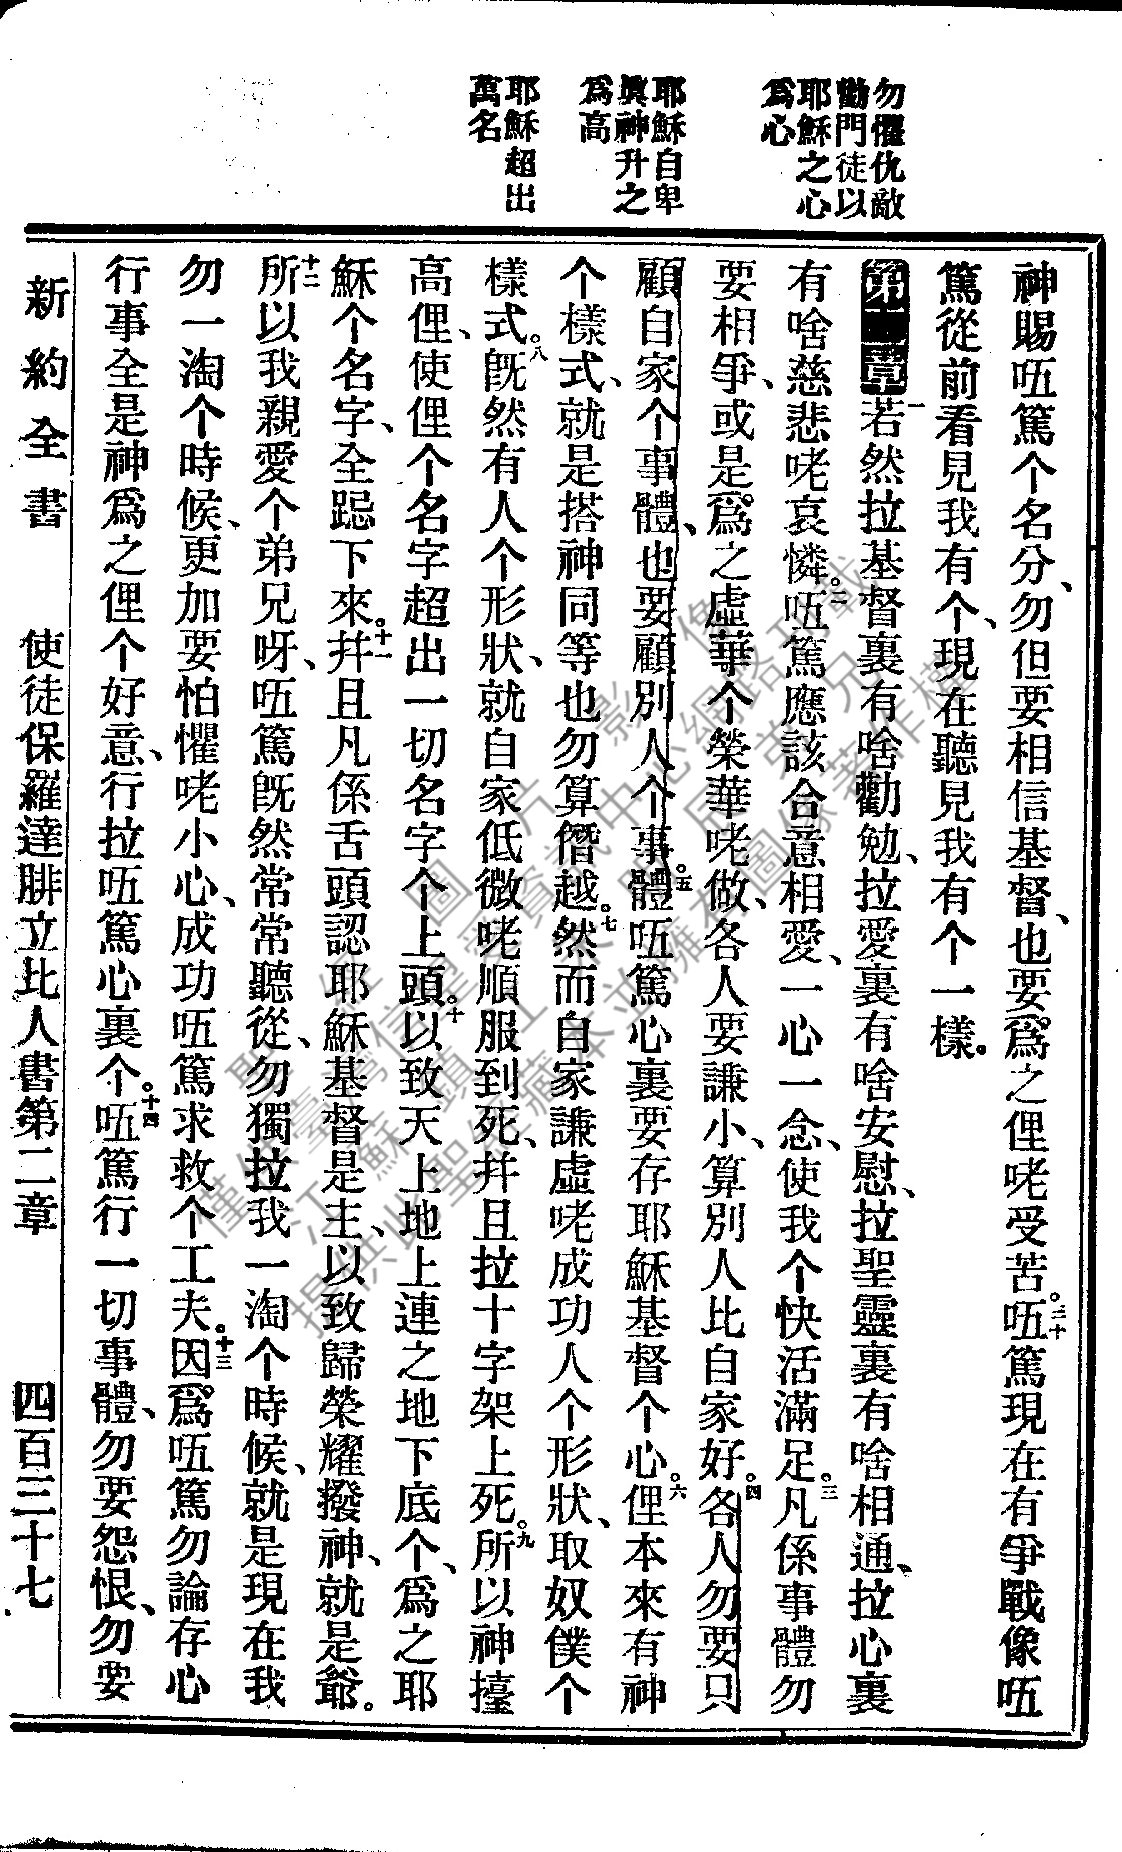 勿懼仇敵
勸門徒以
耶穌之心
爲心
耶穌自卑
眞神升之
爲高
耶穌超出
萬名
神賜㕶篤个名分、勿但要相信基督、也要爲之俚咾受苦。三十㕶篤現在有爭戰像㕶
篤從前看見我有个、現在聽見我有个一樣。
第二章一若然拉基督裏有啥勸勉、拉愛裏有啥安慰、拉聖靈裏有啥相通、拉心裏
有啥慈悲咾哀憐。二㕶篤應該合意相愛、一心一念、使我个快活滿足。三凡係事體勿
要相爭、或是爲之虛華个榮華咾做、各人要謙小、算別人比自家好。四各人勿要只
顧自家个事體、也要顧別人个事體。五㕶篤心裏要存耶穌基督个心。六俚本來有神
个樣式、就是搭神同等也勿算僭越。七然而自家謙虛咾成功人个形狀、取奴僕个
樣式。八旣然有人个形狀、就自家低微咾順服到死、幷且拉十字架上死。九所以神擡
高俚、使俚个名字超出一切名字个上頭。十以致天上地上連之地下底个、爲之耶
穌个名字、全跽下來。十一幷且凡係舌頭認耶穌基督是主、以致歸榮耀撥神、就是爺。
十二所以我親愛个弟兄呀、㕶篤旣然常常聽從、勿獨拉我一淘个時候、就是現在我
勿一淘个時候、更加要怕懼咾小心、成功㕶篤求救个工夫。十三因爲㕶篤勿論存心
行事全是神爲之俚个好意、行拉㕶篤心裏个。十四㕶篤行一切事體、勿要怨恨、勿要
新約全書　使徒保羅達腓立比人書第二章　四百三十七
僅供臺灣信望愛資訊中心網路刊載
提供此聖經藏本並擁有圖像著作權